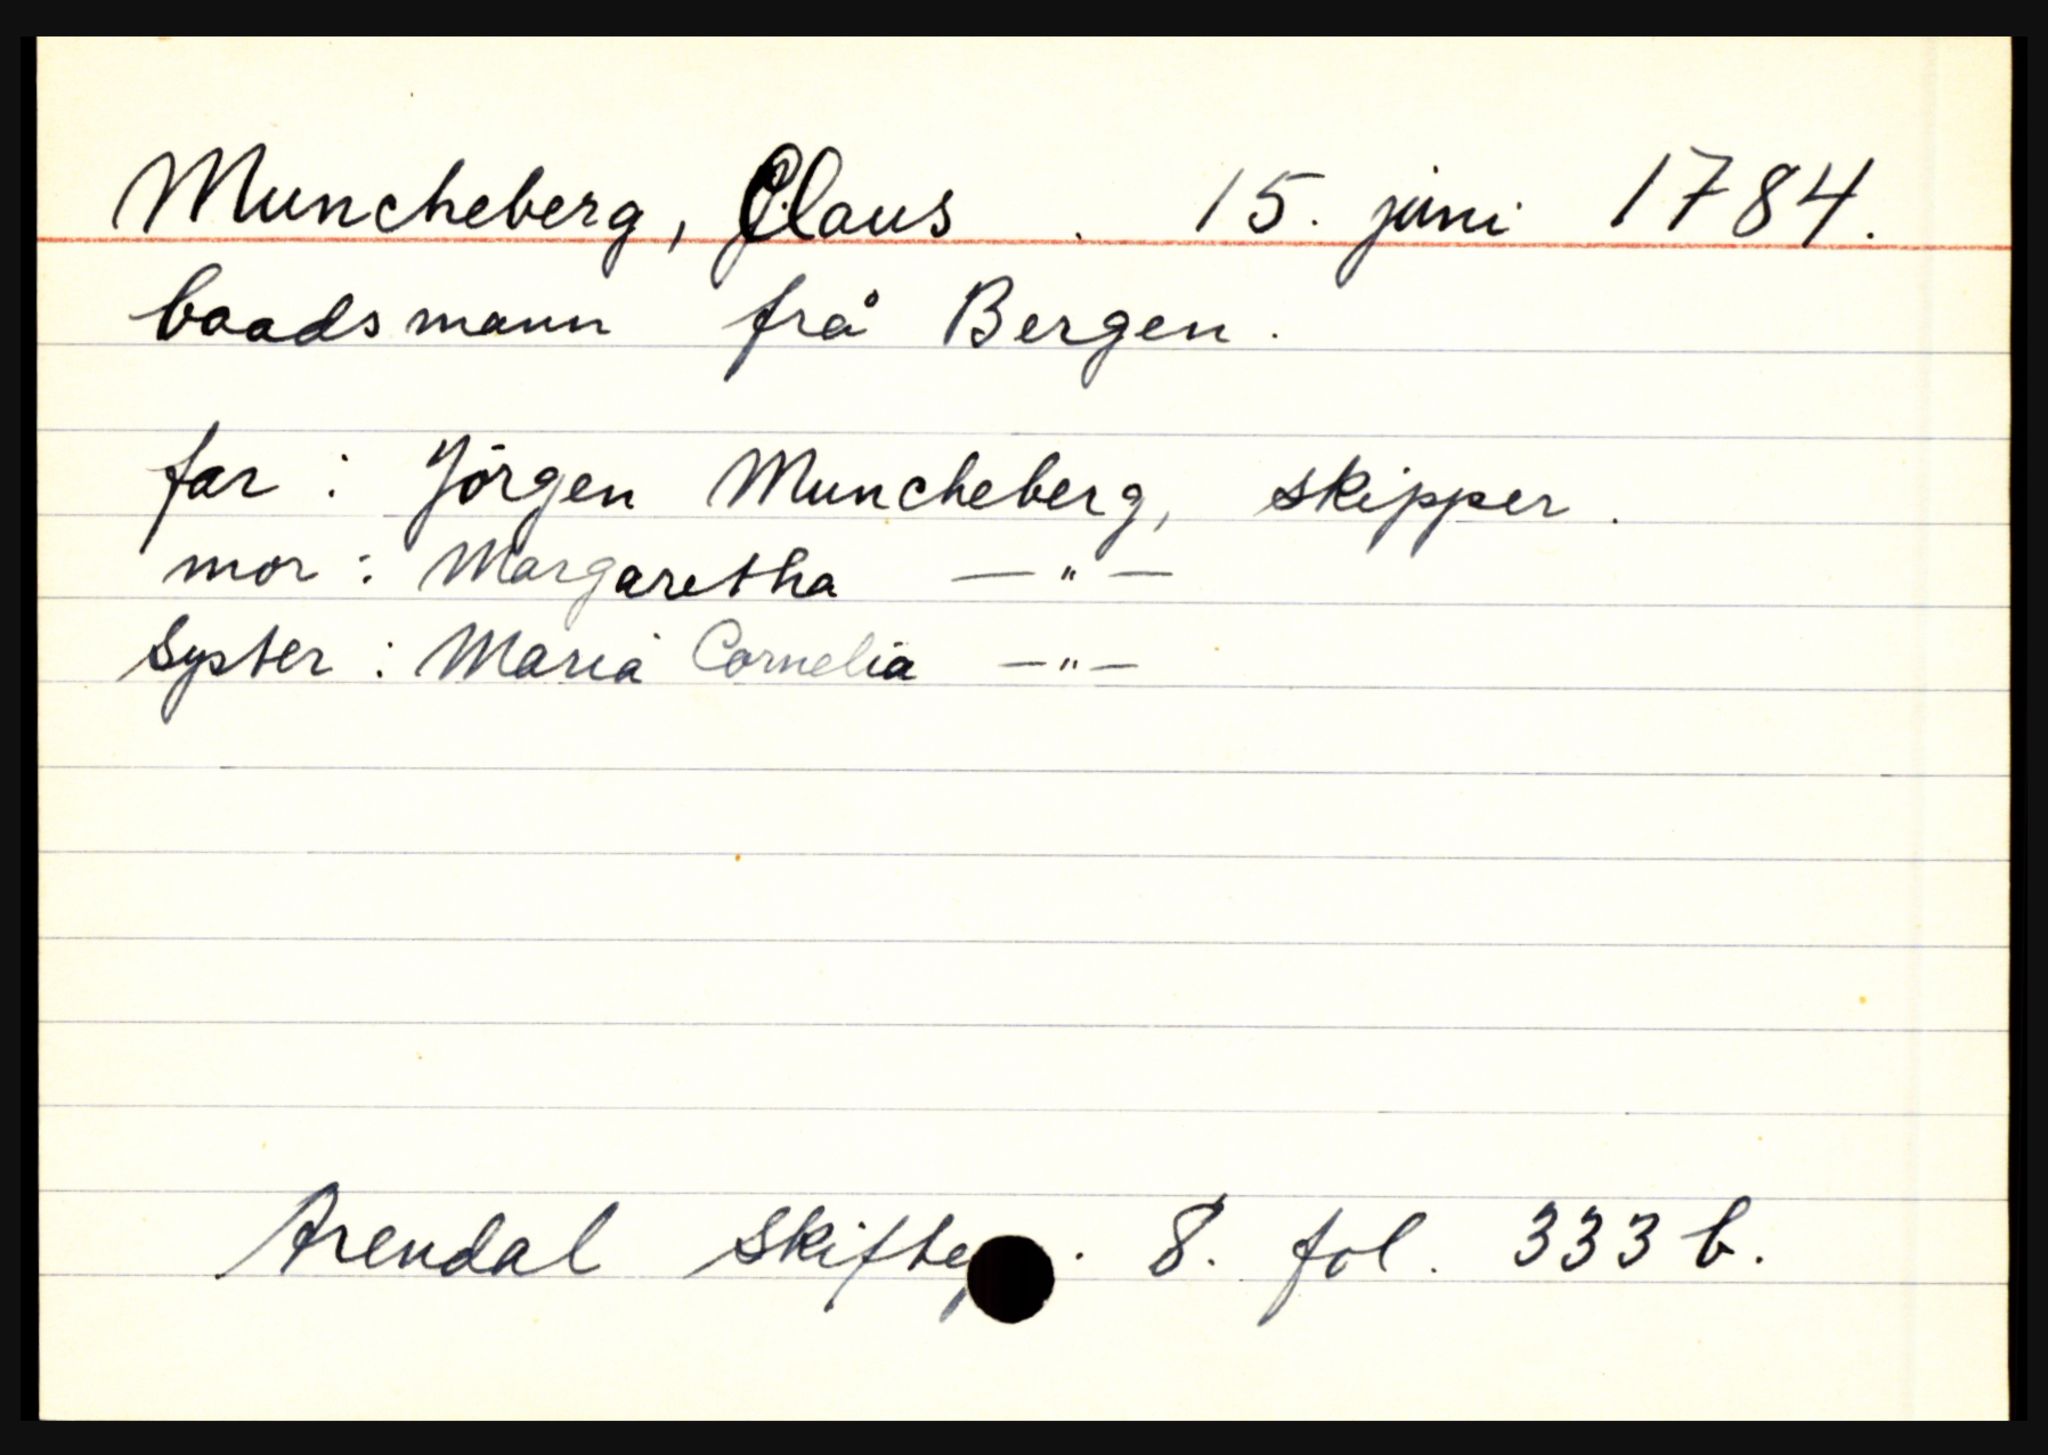 Muncheberg, Claus . 15. juni 1784.
baadsmann frå Bergen.
far : Jörgen Muncheberg, skipper.
mor : Margaretha — " —
Syster : Maria Cornelia — " —
Arendal 8. fol. 333 b.